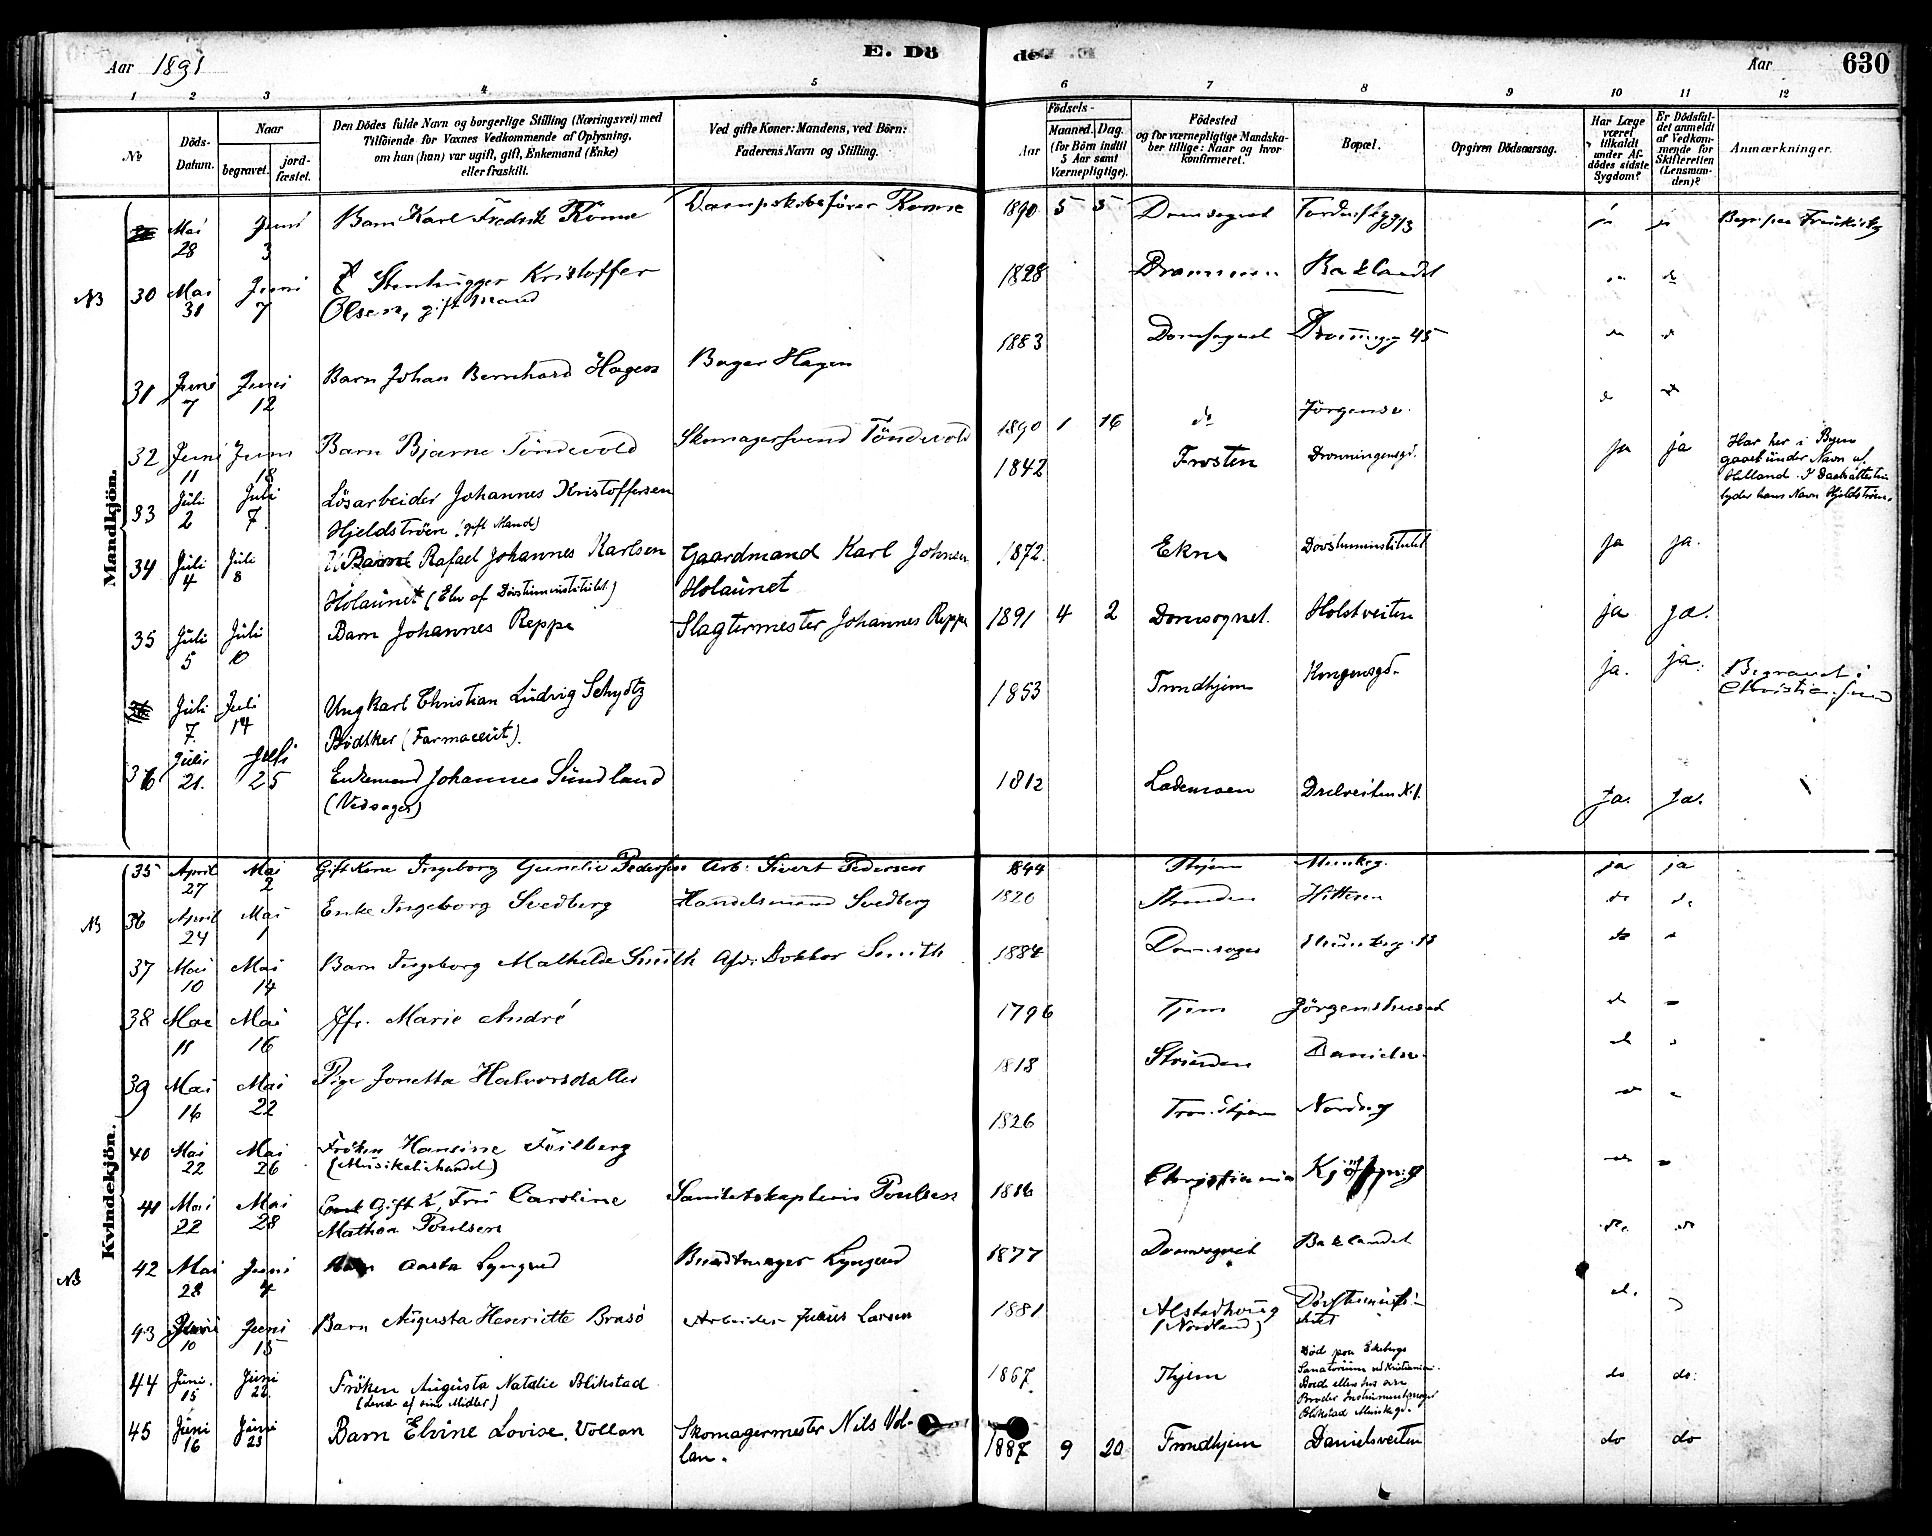 Aar 1891
E. Dö
de.
Aar
630
1 2 3 4 5 6 7 8 9 10 11 12
No
Döds-Datum.
Naar
begravet.
jord-fæstet.
Den Dödes fulde Navn og borgerlige Stilling (Næringsvei) med
Tilföiende for Voxnes Vedkommende af Oplysning,
om han (hun) var ugift, gift, Enkemand (Enke)
eller fraskilt.
Ved gifte Koner: Mandens, ved Börn:
Faderens Navn og Stilling.
Födsels-
Aar
Maaned. Dag.
(for Börn indtil
5 Aar samt
Værnepligtige).
Födested
og for værnepligtige Mandska-
ber tillige: Naar og hvor
konfirmeret.
Bopæl.
Opgiven Dödsaarsag.
Har Læge
været
tilkaldt
under Af-
dödes sidste
Sygdom?
Er Dödsfal-
det anmeldt
af Vedkom-
mende for
Skifteretten
(Lensman-
den)?
Anmærkninger.
Mandkjön.
Mai 28 Juni 3 Barn Karl Fredrik Röme Dampskibsfører Rome 1890 5 5 Domsognet ja ja
NB 30 Mai 31 Juni 7 Stenhugger Kristoffer
Olsen, gift Mand 1828 Drammen Baklandet do do
31 Juni 7 Juni 12 Barn Johan Bernhard Hagen Bager Hagen 1883 Domsognet 45 do do
32 Juni 11 Juni 18 Barn Bjarne Töndevold Skomagersvend Töndevold 1890 1 16 do Jørgensv. do do
33 Juli 2 Juli 7. Lösarbeider Johannes Kristoffersen
Hjeldströen (gift Mand) 1842 Frosten Dronningensgd. ja ja Har her i Byen
gaaet under Navn af
Hilland. I Daabsattesten
lyder hans Navn Hjeldströen.
34 Juli 4 Juli 8 Rafael Johannes Karlsen
Holaunet (Elev af Dövstuminstitutet) Gaardmand Karl Johnsen
Holaunet 1872. Ekne Dovstuminstitutet ja ja.
35 Juli 5 Juli 10 Barn Johannes Reppe Slagtermester Johannes Reppe 1891 4 2 Domsognet. Holstveiten ja ja.
Juli 7. Juli 14 Ungkarl Christian Ludvig Schydtz
Bödtker (Farmaceut). 1853 Trondhjem Kongensgd. ja. ja. Begravet i
Christiansund
36 Juli 21. Juli 25 Enkemand Johannes Sundland
(Vedsager) 1812 Lademoen ja. ja.
Kvindekjön.
35 April 27 Mai 2 Gift Kone Ingeborg Gurnelie Pedersen Arb: Sivert Pedersen 1844 Thjem Munkeg. ja ja
NB 36 April 24 Mai 1 Enke Ingeborg Svedberg Handelsmand Svedberg 1820 Strinden do do
37 Mai 10 Mai 14 Barn Ingeborg Mathilde Smith Afd. Doktor Smith 1884 Munkeg. 13 do
38 Mai 11 Mai 16 Jfr. Marie André 1796 Tjem Jörgenshuset do
39 Mai 16 Mai 22 Pige Jonetta Halvorsdatter 1818 Strinden Danielsv. do
40 Mai 22 Mai 26 Fröken Hansine Föilberg
(Musikalichandel) 1826 Trondhjem Nordreg do
41 Mai 22 Mai 28 Gift K, Fru Caroline
Mathea Poulsen Sanitetskaptein Poulsen 1816 Christiania do
NB 42 Mai 28 Juni 4 Aasta Lyngved Buntmager Lyngved 1877 Domsognet Baklandet do. do
43 Juni 10 Juni 15 Barn Augusta Henriette Brasö Arbeider Julius Larsen 1881 Alstadhoug
(Nordland) Dövstuminsti-
tutet do.
44 Juni. 15 Juni 22. Fröken Augusta Natalie Blikstad
(levde af sine Midler) 1867. Thjem Död paa Ekebergs
Sanatorium ved Kristiania.
Boede ellers hos sin
Broder Instrumentmager
Blikstad Munkegd. do do.
45 Juni 16 Juni 23 Barn Elvine Lovise. Vollan Skomagermester Nils Vol-
lan. 1887 9 20 Trondhjem Danielsveiten do do